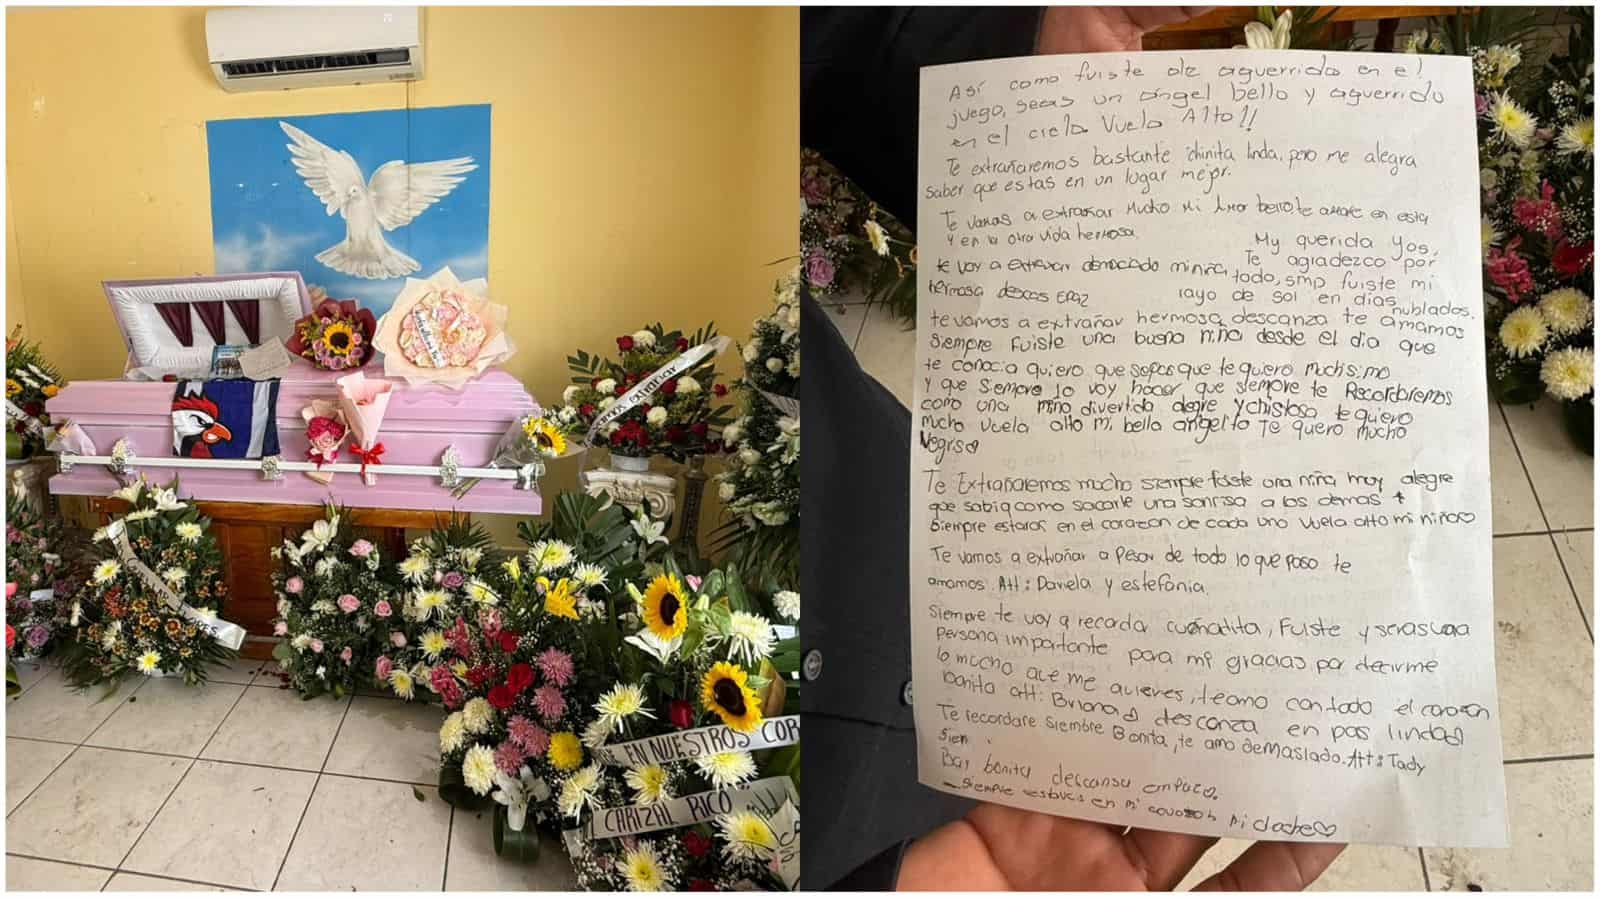 vamos extrañar
QUE EN NUESTROS COR
CARIZAL RICO
Así como fuiste de aguerrida en el
juego, seras un ángel bello y aguerrido
en el cielo Vuela Alto!!
Te extrañaremos bastante chinita linda, pero me alegra
saber que estas en un lugar mejor.
Te vamos a extrañar Mucho Mi Amor bello te amare en esta
y en la otra vida hermosa.
My querida Yos,
Te agradezco por
todo, smp fuiste mi
rayo de sol en días nublados.
te voy a extrañar demaciado mi niña
hermosa descas EPAZ
te vamos a extrañar hermosa descanza te amamos
Siempre fuiste una buena niña desde el dia que
te conocia quiero que sepas que te quiero muchisimo
y que siempre lo voy hacer que siempre te Recordaremos
como una niña divertida alegre y chistosa te quiero
mucho vuela alto mi bella angelito te quiero mucho
Negris
Te Extrañaremos mucho siempre fuiste una niña muy alegre
que sabia como sacarle una sonrisa a los demas
siempre estaras en el corazon de cada uno vuela alto mi niña
Te vamos a extrañar a pesar de todo lo que paso te
amamos. Att: Daniela y estefania.
Siempre te voy a recorda cuñadita, Fuiste y seras una
persona importante para mi gracias por decirme
lo mucho que me quieres, te amo con todo el corazon
bonita att: Briana descanza en pas linda
Te recordare siempre Bonita, te amo demasiado. Att: Tady
Sien
Bay bonita descansa enpaco.
Siempre estaras en mi corazon